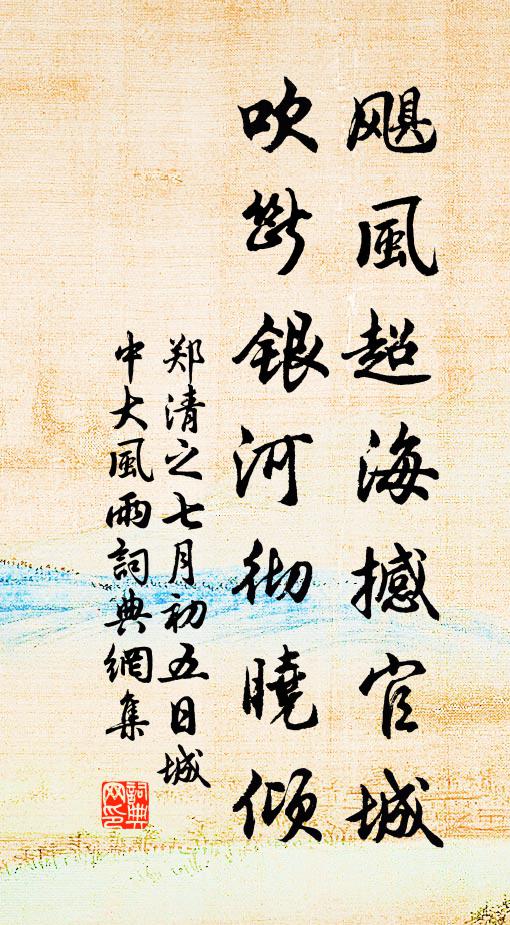 颶風超海撼官城
吹斷銀河彻曉傾
郑清之七月初五日城
中大風雨詞典網集
詞典网印